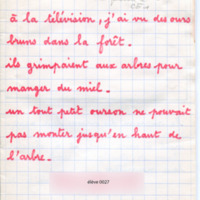 à la télévision, j'ai vu des ours
bruns dans la forêt.
ils grimpaient aux arbres pour
manger du miel.
un tout petit ourson ne pouvait
pas monter jusqu'en haut de
l'arbre.
élève 0027